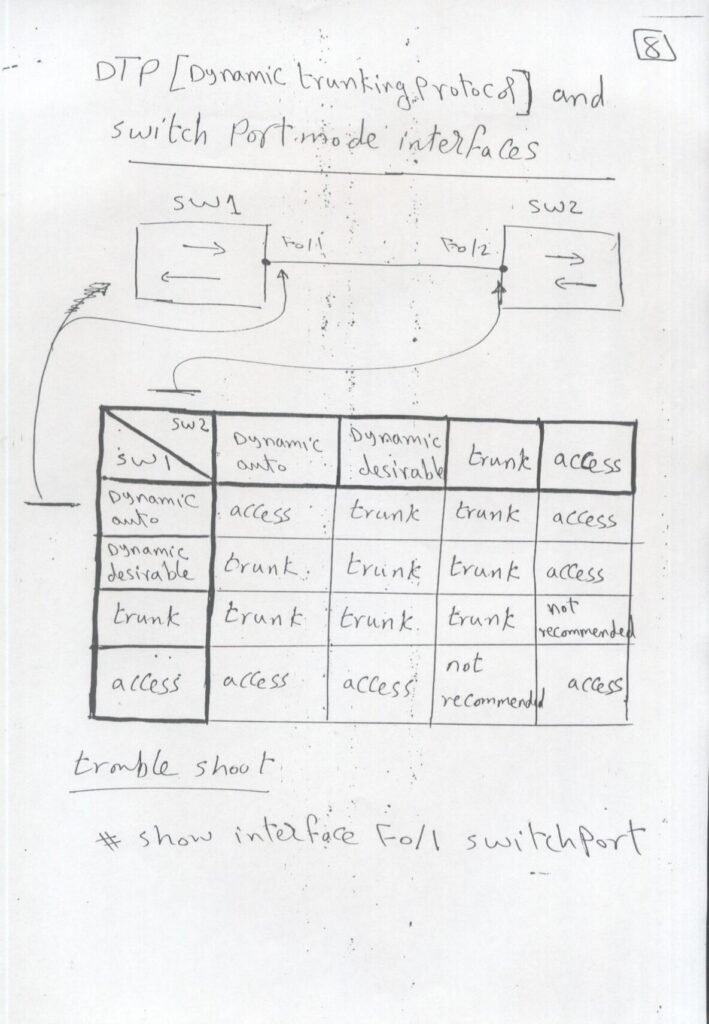 8
DTP [Dynamic trunking Protocol] and
switch Port mode interfaces
SW1
SW2
Fo/1
Fo/2
SW2
SW1
Dynamic auto
Dynamic desirable
trunk
access
Dynamic auto
access
trunk
trunk
access
Dynamic desirable
trunk
trunk
trunk
access
trunk
trunk
trunk
trunk
not recommended
access
access
access
not recommended
access
trouble shoot
# show interface Fo/1 switchPort